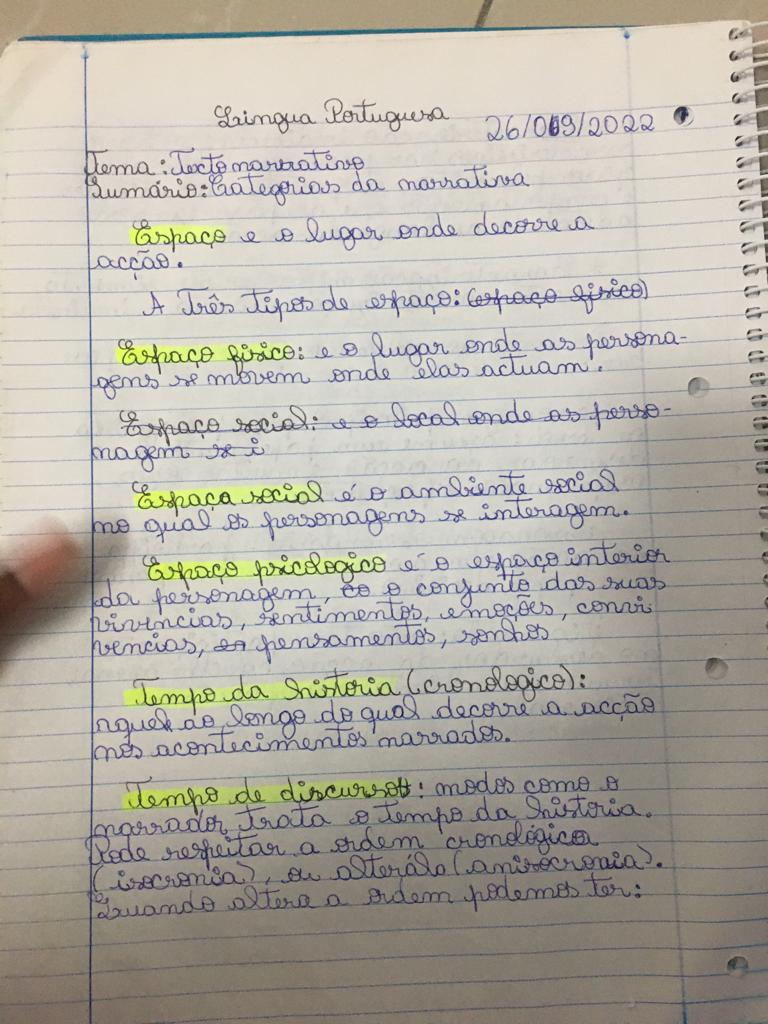 Lingua Portuguesa
26/09/2022
Tema: Texto narrativo
Sumário: Categrias da narrativa
Espaço e o lugar onde decorre a
acção.
A Três tipos de espaço: (espaço fisico)
Espaço fisico: e o lugar onde as persona-
gens se movem onde elas actuam.
Espaço social: e o local onde as perso-
nagem se i
Espaça social é o ambiente social
no qual os personagens se interagem.
Espaço psicologico é o espaço interior
da personagem, é o conjunto das suas
vivencias, sentimentos, emoções, convi
vencias, pensamentos, sonhos
Tempo da historia (cronologico):
aquele ao longo do qual decorre a acção
nos acontecimentos narrados.
Tempo de discurso: modos como o
narrador trata o tempo da historia.
Pode respeitar a ordem cronológica
(isocronia), ou alterálo (anisocronia).
Quando altera a ordem podemos ter: